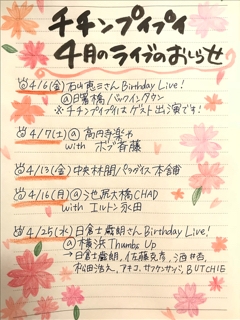 チチンプイプイ
4月のライブのおしらせ
4/6(金) 石山恵三さん Birthday Live!
@日暮橋 バックインタウン
※チチンプイプイはゲスト出演です!
4/7(土) @高円寺楽や
with ポップ斉藤
4/13(金) 中央林間パラダイス本舗
4/16(月) @池尻大橋CHAD
with エルトン永田
4/25(水) 日倉士歳朗さん Birthday Live!
@横浜 Thumbs Up
→日倉士歳朗、佐藤克彦、
松田浩久、アキコ、サツケンサンバ、BUTCHIE